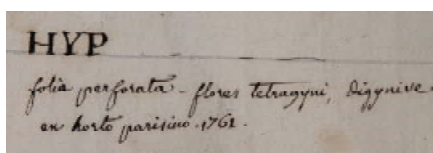 HYP
folia perforata - flores tetragyni, digynive -
en horto parisino. 1761.